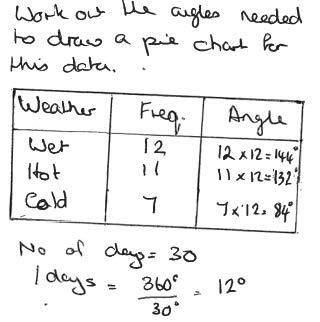 Work out the angles needed
to draw a pie chart for
this data.
Weather Freq. Angle
Wet 12 12 x 12 = 144°
Hot 11 11 x 12 = 132°
Cold 7 7 x 12 = 84°
No of days = 30
1 days = 360° = 12°
30°